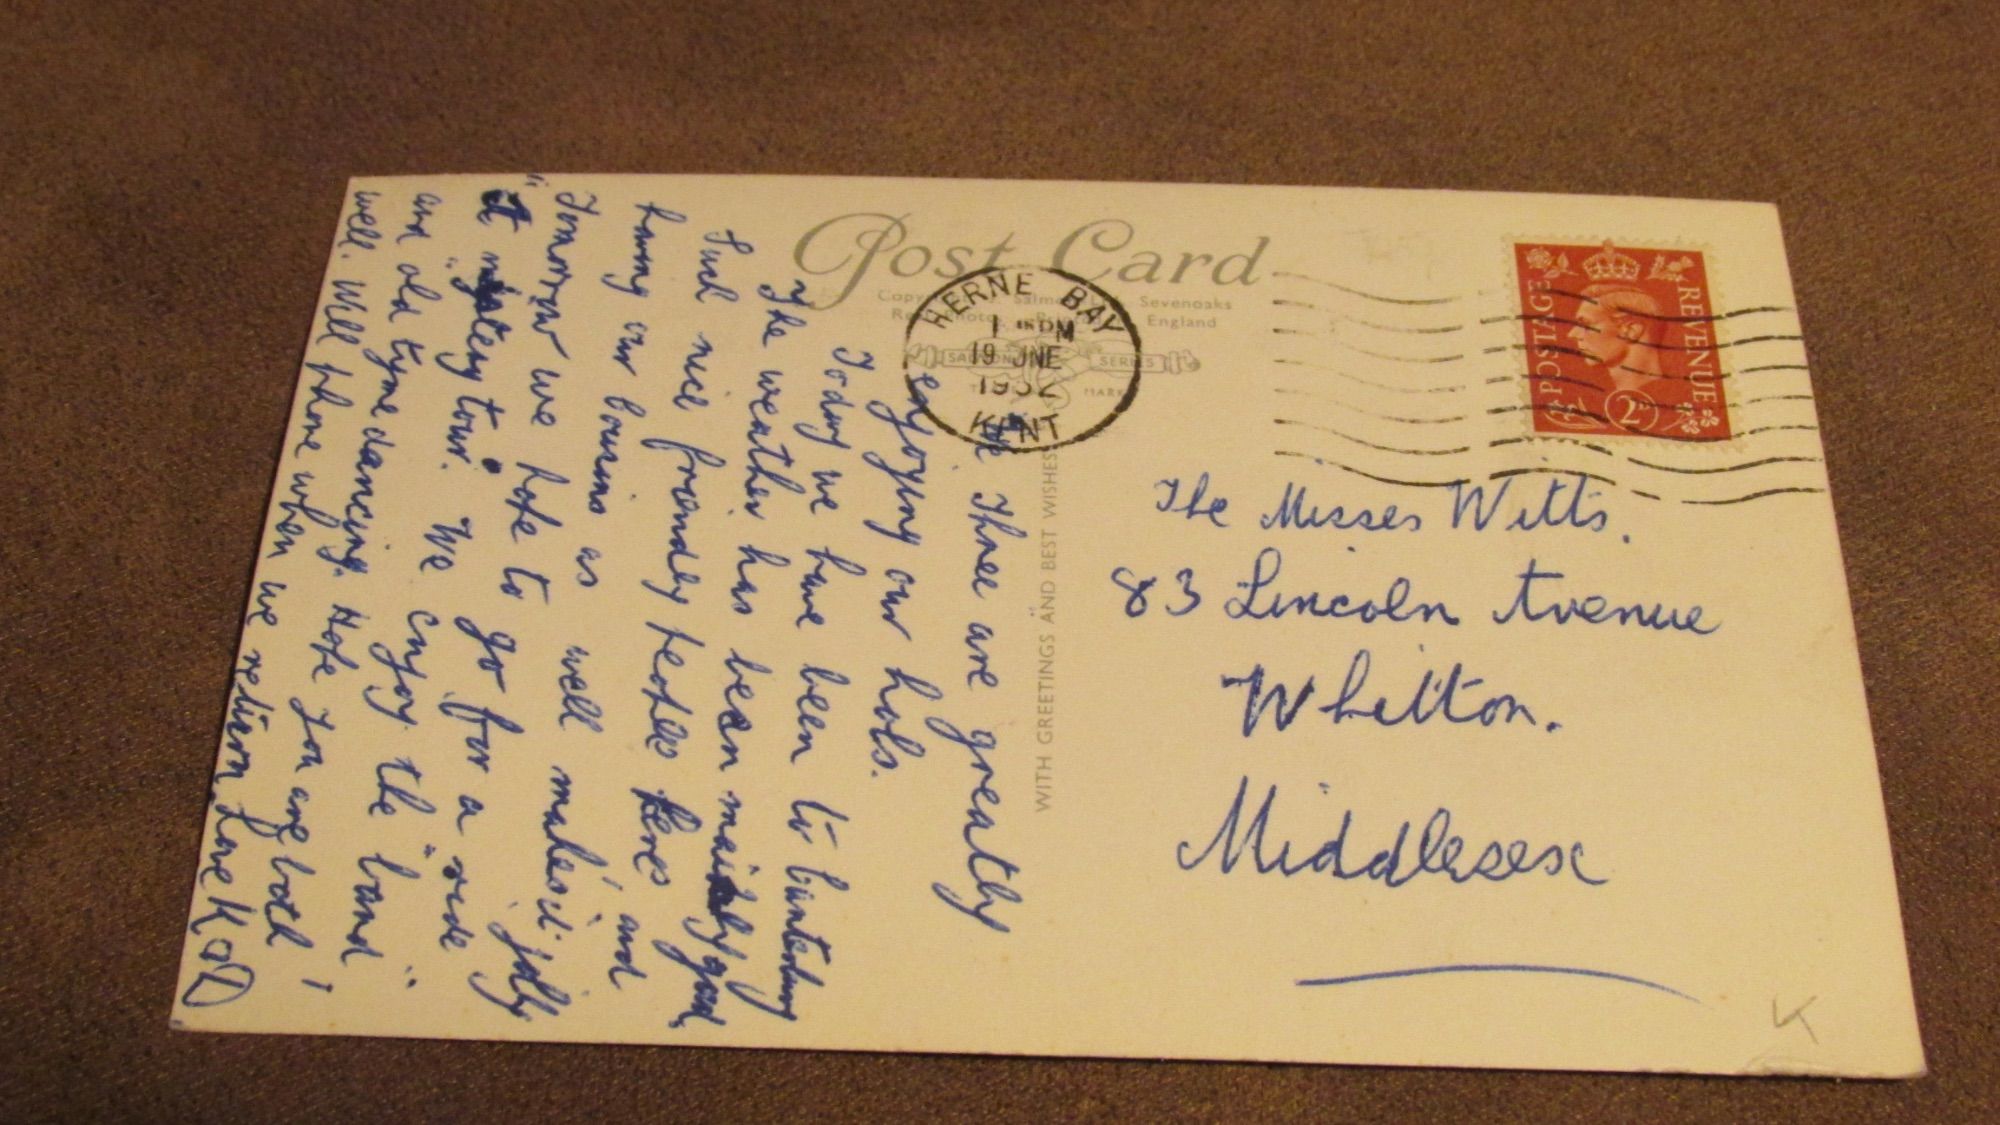 Post Card
Salmon Sevenoaks
England
SALMON SERIES
HERNE BAY
1 PM
19 JNE
1952
KENT
POSTAGE REVENUE
2D
WITH GREETINGS AND BEST WISHES
We Three are greatly
enjoying our hols.
Today we have been to Canterbury
The weather has been mainly good.
Such nice friendly peoples here and
having our cousins as well makes it jolly.
Tomorrow we hope to go for a "ride
"mystery tour." We enjoy the "band"
and old tyme dancing. Hope you are both
well. Will phone when we return. Love K
The Misses Witts.
83 Lincoln Avenue
Whitton.
Middlesex
K